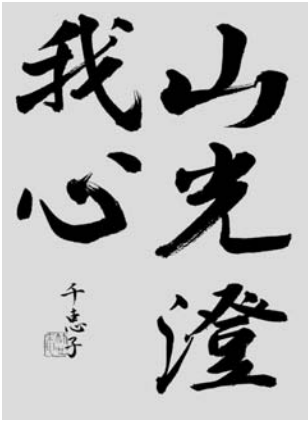 山光澄
我心
千恵子